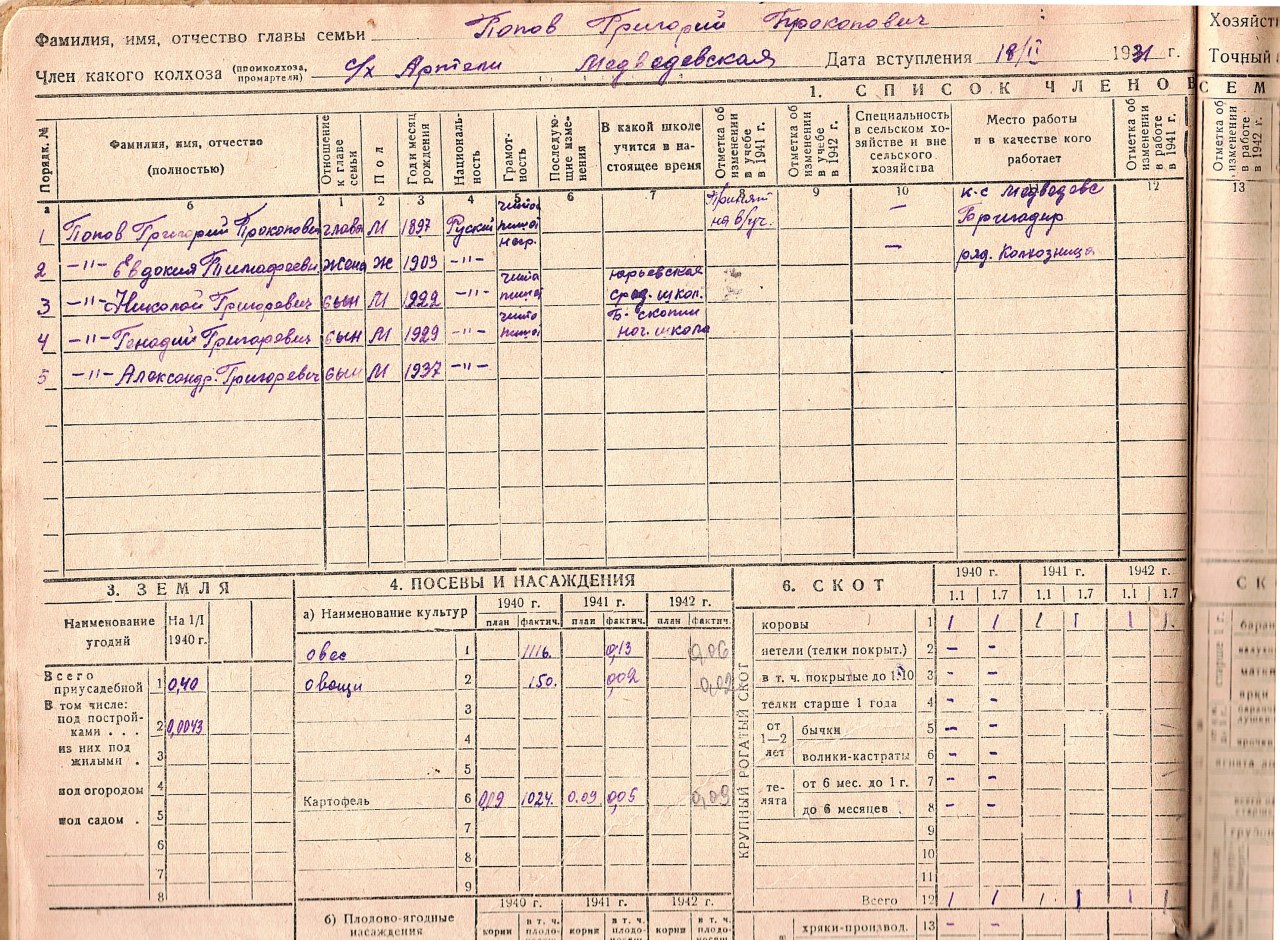 Фамилия, имя, отчество главы семьи Попов Григорий Прокопович
Член какого колхоза (промколхоза, промартели) с/х Артели Медведевская Дата вступления 18/II 1931 г.
Хозяйст
Точный
1. СПИСОК ЧЛЕНОВ СЕМ
Порядк. № Фамилия, имя, отчество (полностью) Отношение к главе семьи Пол Год и месяц рождения Националь-ность Грамот-ность Последую-щие изме-нения В какой школе учится в на-стоящее время Отметка об изменении в учебе в 1941 г. Отметка об изменении в учебе в 1942 г. Специальность в сельском хо-зяйстве и вне сельского хозяйства Место работы и в качестве кого работает Отметка об изменении в работе в 1941 г. Отметка об изменении в работе в 1942 г.
а б 1 2 3 4 5 6 7 8 9 10 12 13
1 Попов Григорий Прокопович глава М 1897 Руский чита пишет Принят на в/уч. — к-с Медведевс Бригадир
2 —"— Евдокия Тимафеевн жена Ж 1903 —"— негр. — ряд. Колхозница
3 —"— Николай Григоревич сын М 1922 —"— чита пишет Юрьевская сред. школ.
4 —"— Генадий Григоревич сын М 1929 —"— чита пишет Б-скопин нач. школа
5 —"— Александр Григоревич сын М 1937 —"—
3. ЗЕМЛЯ
Наименование угодий На 1/I 1940 г.
Всего приусадебной 1 0,40
В том числе:
под построй-ками . . . 2 0,0043
из них под жилыми . 3
под огородом 4
под садом . 5
6
7
8
4. ПОСЕВЫ И НАСАЖДЕНИЯ
а) Наименование культур 1940 г. 1941 г. 1942 г.
план фактич. план фактич. план фактич.
овес 1 1116. 0,13 0,06
овощи 2 150. 0,02 0,02
3
4
5
Картофель 6 0,09 1024. 0.09 0,05 0,09
7
8
9
б) Плодово-ягодные насаждения 1940 г. 1941 г. 1942 г.
корни в т. ч. плодо- корни в т. ч. плодо- корни в т. ч. плодо-
6. СКОТ
1940 г. 1941 г. 1942 г.
1.1 1.7 1.1 1.7 1.1 1.7
КРУПНЫЙ РОГАТЫЙ СКОТ
коровы 1 1 1 1 1 1 1
нетели (телки покрыт.) 2 - -
в т. ч. покрытые до 1.10 3 - -
телки старше 1 года 4 - -
от 1—2 лет бычки 5 - -
волики-кастраты 6 - -
те-лята от 6 мес. до 1 г. 7 - -
до 6 месяцев 8 - -
9
10
11
Всего 12 1 1 1 1 1 1
хряки-производ. 13 - -
СК